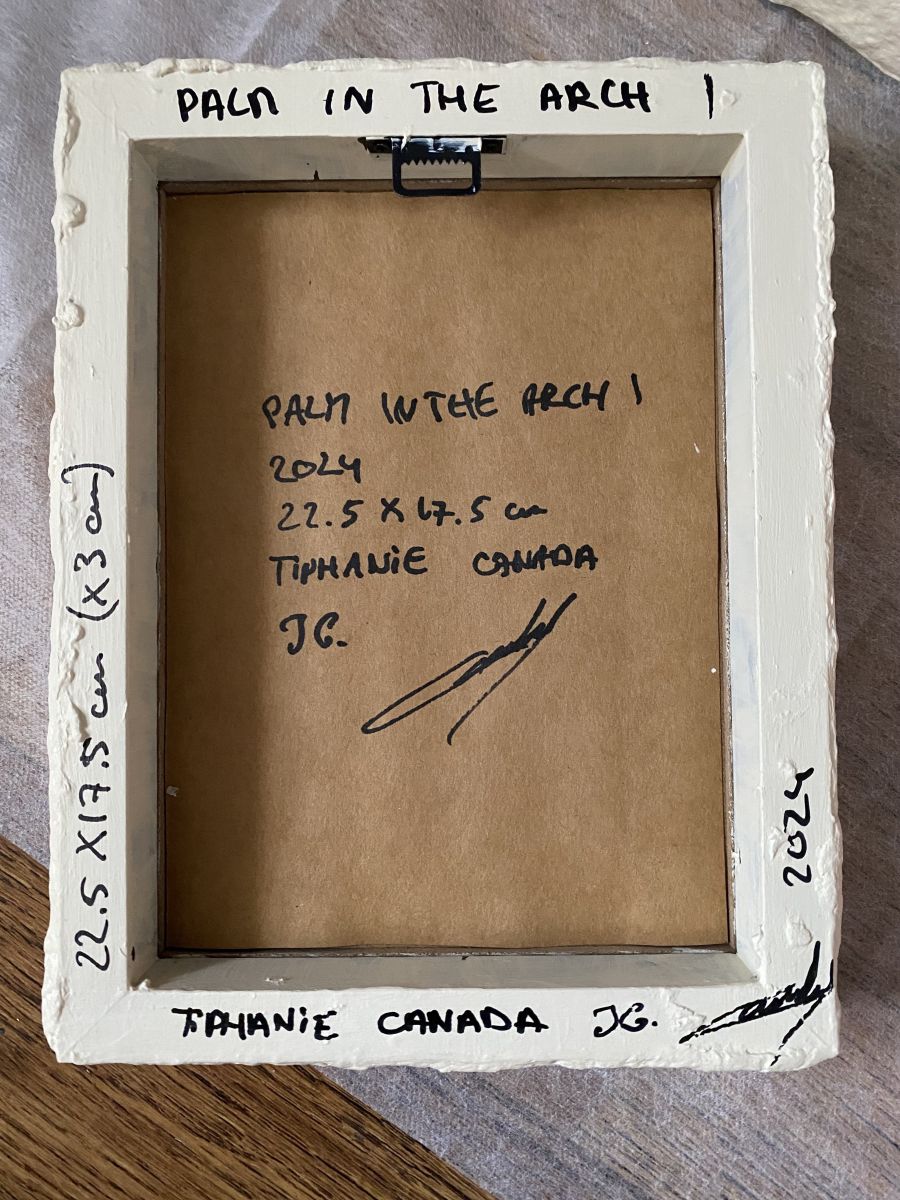 PALM IN THE ARCH I
PALM IN THE ARCH I
2024
22.5 X 17.5 cm
TIPHANIE CANADA
JG.
22.5 X 17.5 cm (x3 cm)
2024
TIPHANIE CANADA JG.